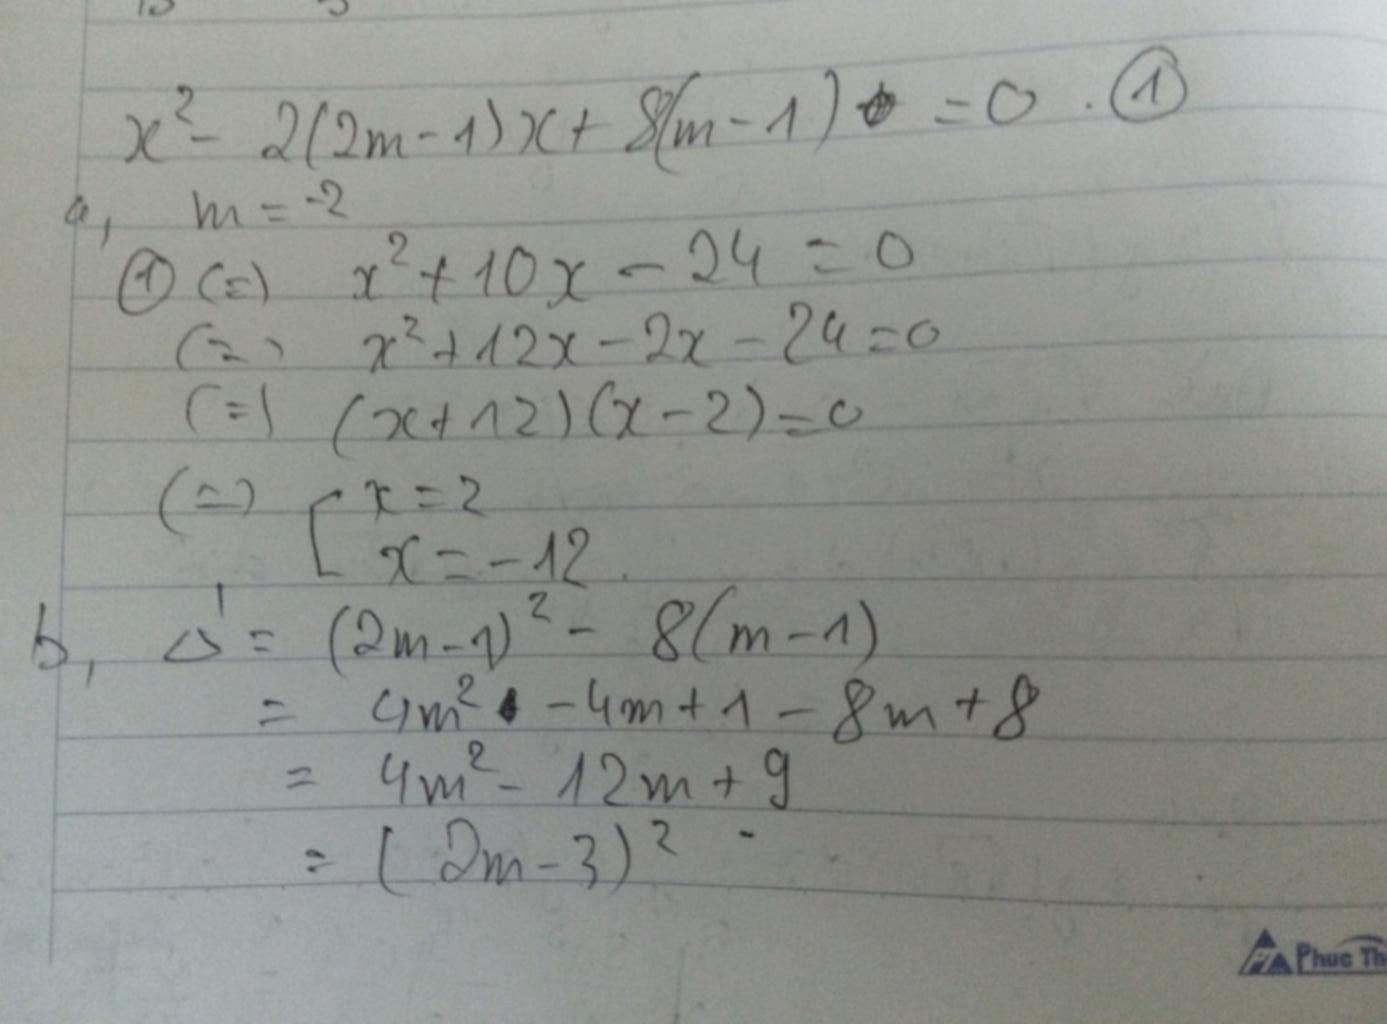 x² - 2(2m-1)x + 8(m-1) = 0 . ①
a, m = -2
① (=) x² + 10x - 24 = 0
(=) x² + 12x - 2x - 24 = 0
(=) (x+12)(x-2) = 0
(=) [ x = 2
x = -12.
b, Δ' = (2m-1)² - 8(m-1)
= 4m² - 4m + 1 - 8m + 8
= 4m² - 12m + 9
= (2m-3)²
Phuc Th